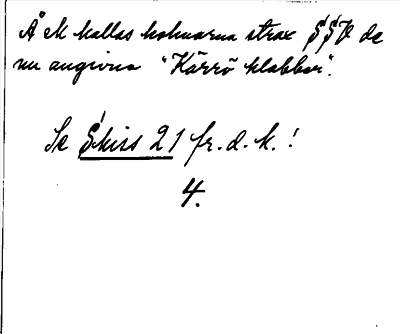 Å M kallas holmarna strax SSV de
nu angivna "Kärrö klabbar".
Se Skiss 21 fr. d. k.!
4.